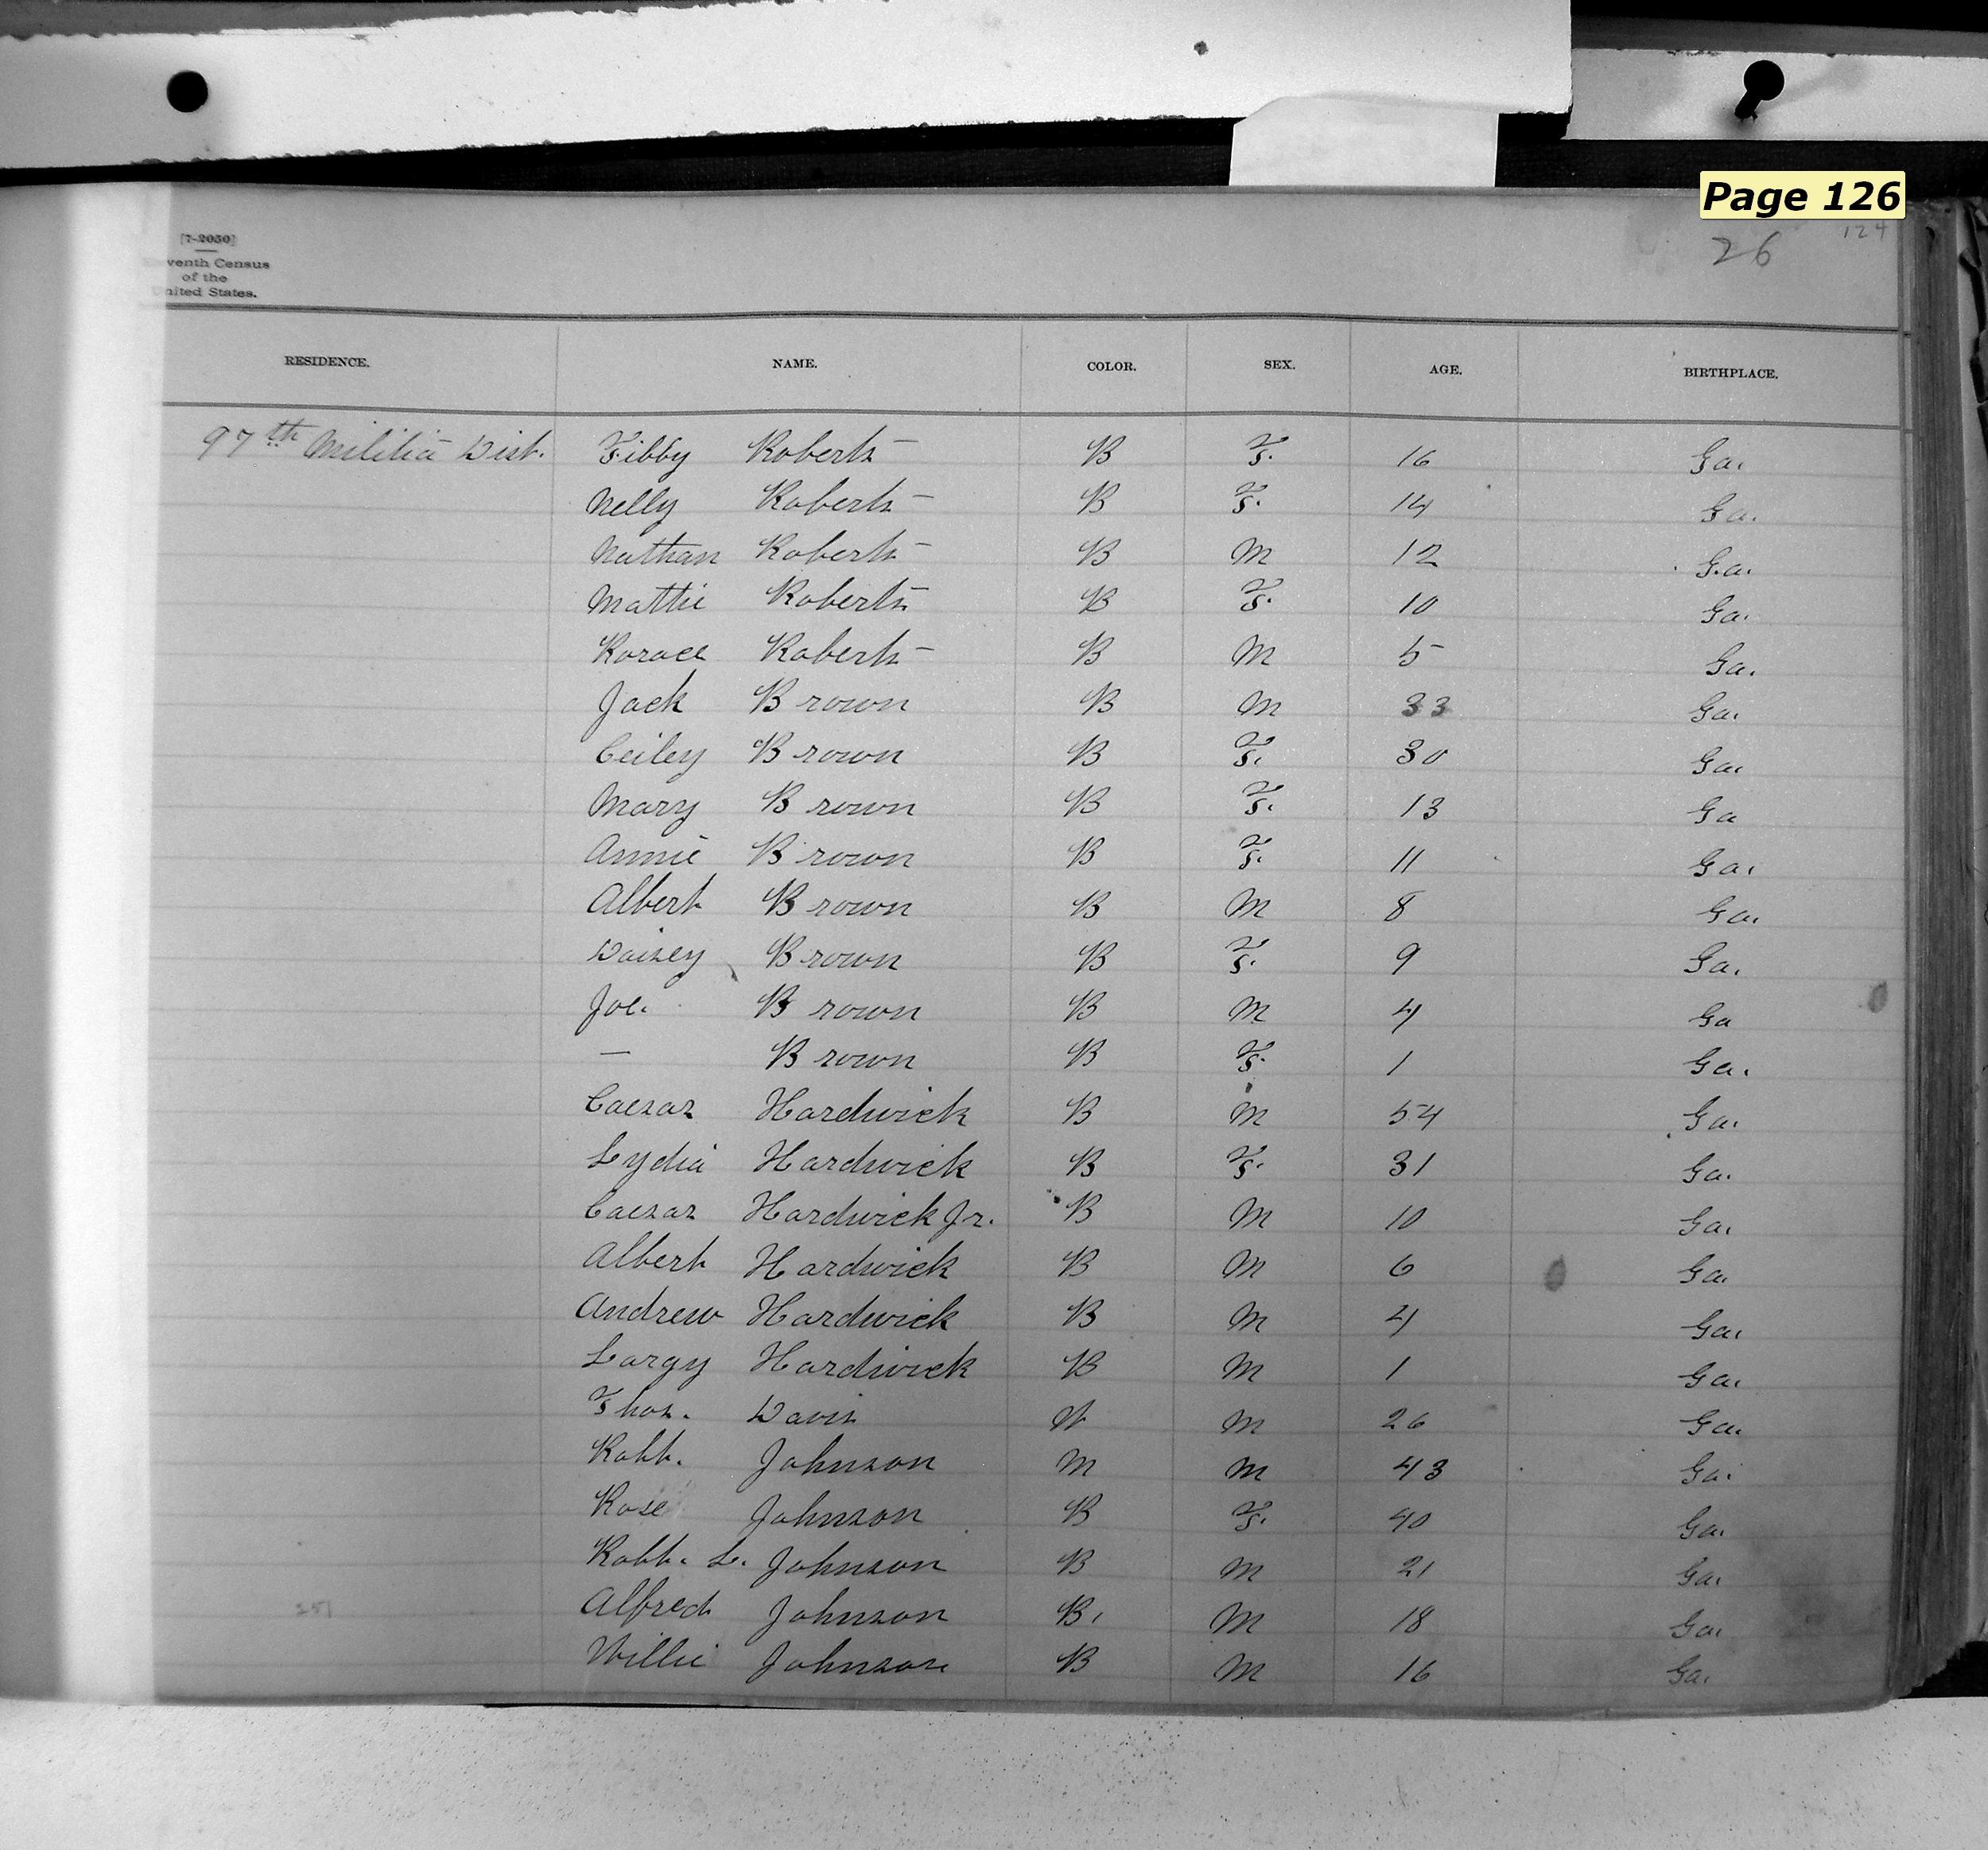 Page 126
124
26
[7-2050]
venth Census
of the
nited States.
RESIDENCE. NAME. COLOR. SEX. AGE. BIRTHPLACE.
97th Militia Dist. Tibby Roberts B F. 16 Ga.
Nelly Roberts B F. 14 Ga.
Nathan Roberts B M 12 Ga.
Mattie Roberts B F. 10 Ga.
Horace Roberts B M 5 Ga.
Jack Brown B M 33 Ga.
Ceiley Brown B F. 30 Ga.
Mary Brown B F. 13 Ga
Annie Brown B F. 11 Ga.
Albert Brown B M 8 Ga.
Daisey Brown B F. 9 Ga.
Joe. Brown B M 4 Ga
— Brown B F. 1 Ga.
Caesar Hardwick B M 54 Ga.
Lydia Hardwick B F. 31 Ga.
Caesar Hardwick Jr. B M 10 Ga.
Albert Hardwick B M 6 Ga.
Andrew Hardwick B M 4 Ga.
Largy Hardwick B M 1 Ga.
Thos. Davis W M 26 Ga.
Robt. Johnson M M 43 Ga.
Rose Johnson B F. 40 Ga.
Robt. L. Johnson B M 21 Ga.
Alfred Johnson B. M 18 Ga.
Willie Johnson B M 16 Ga.
251